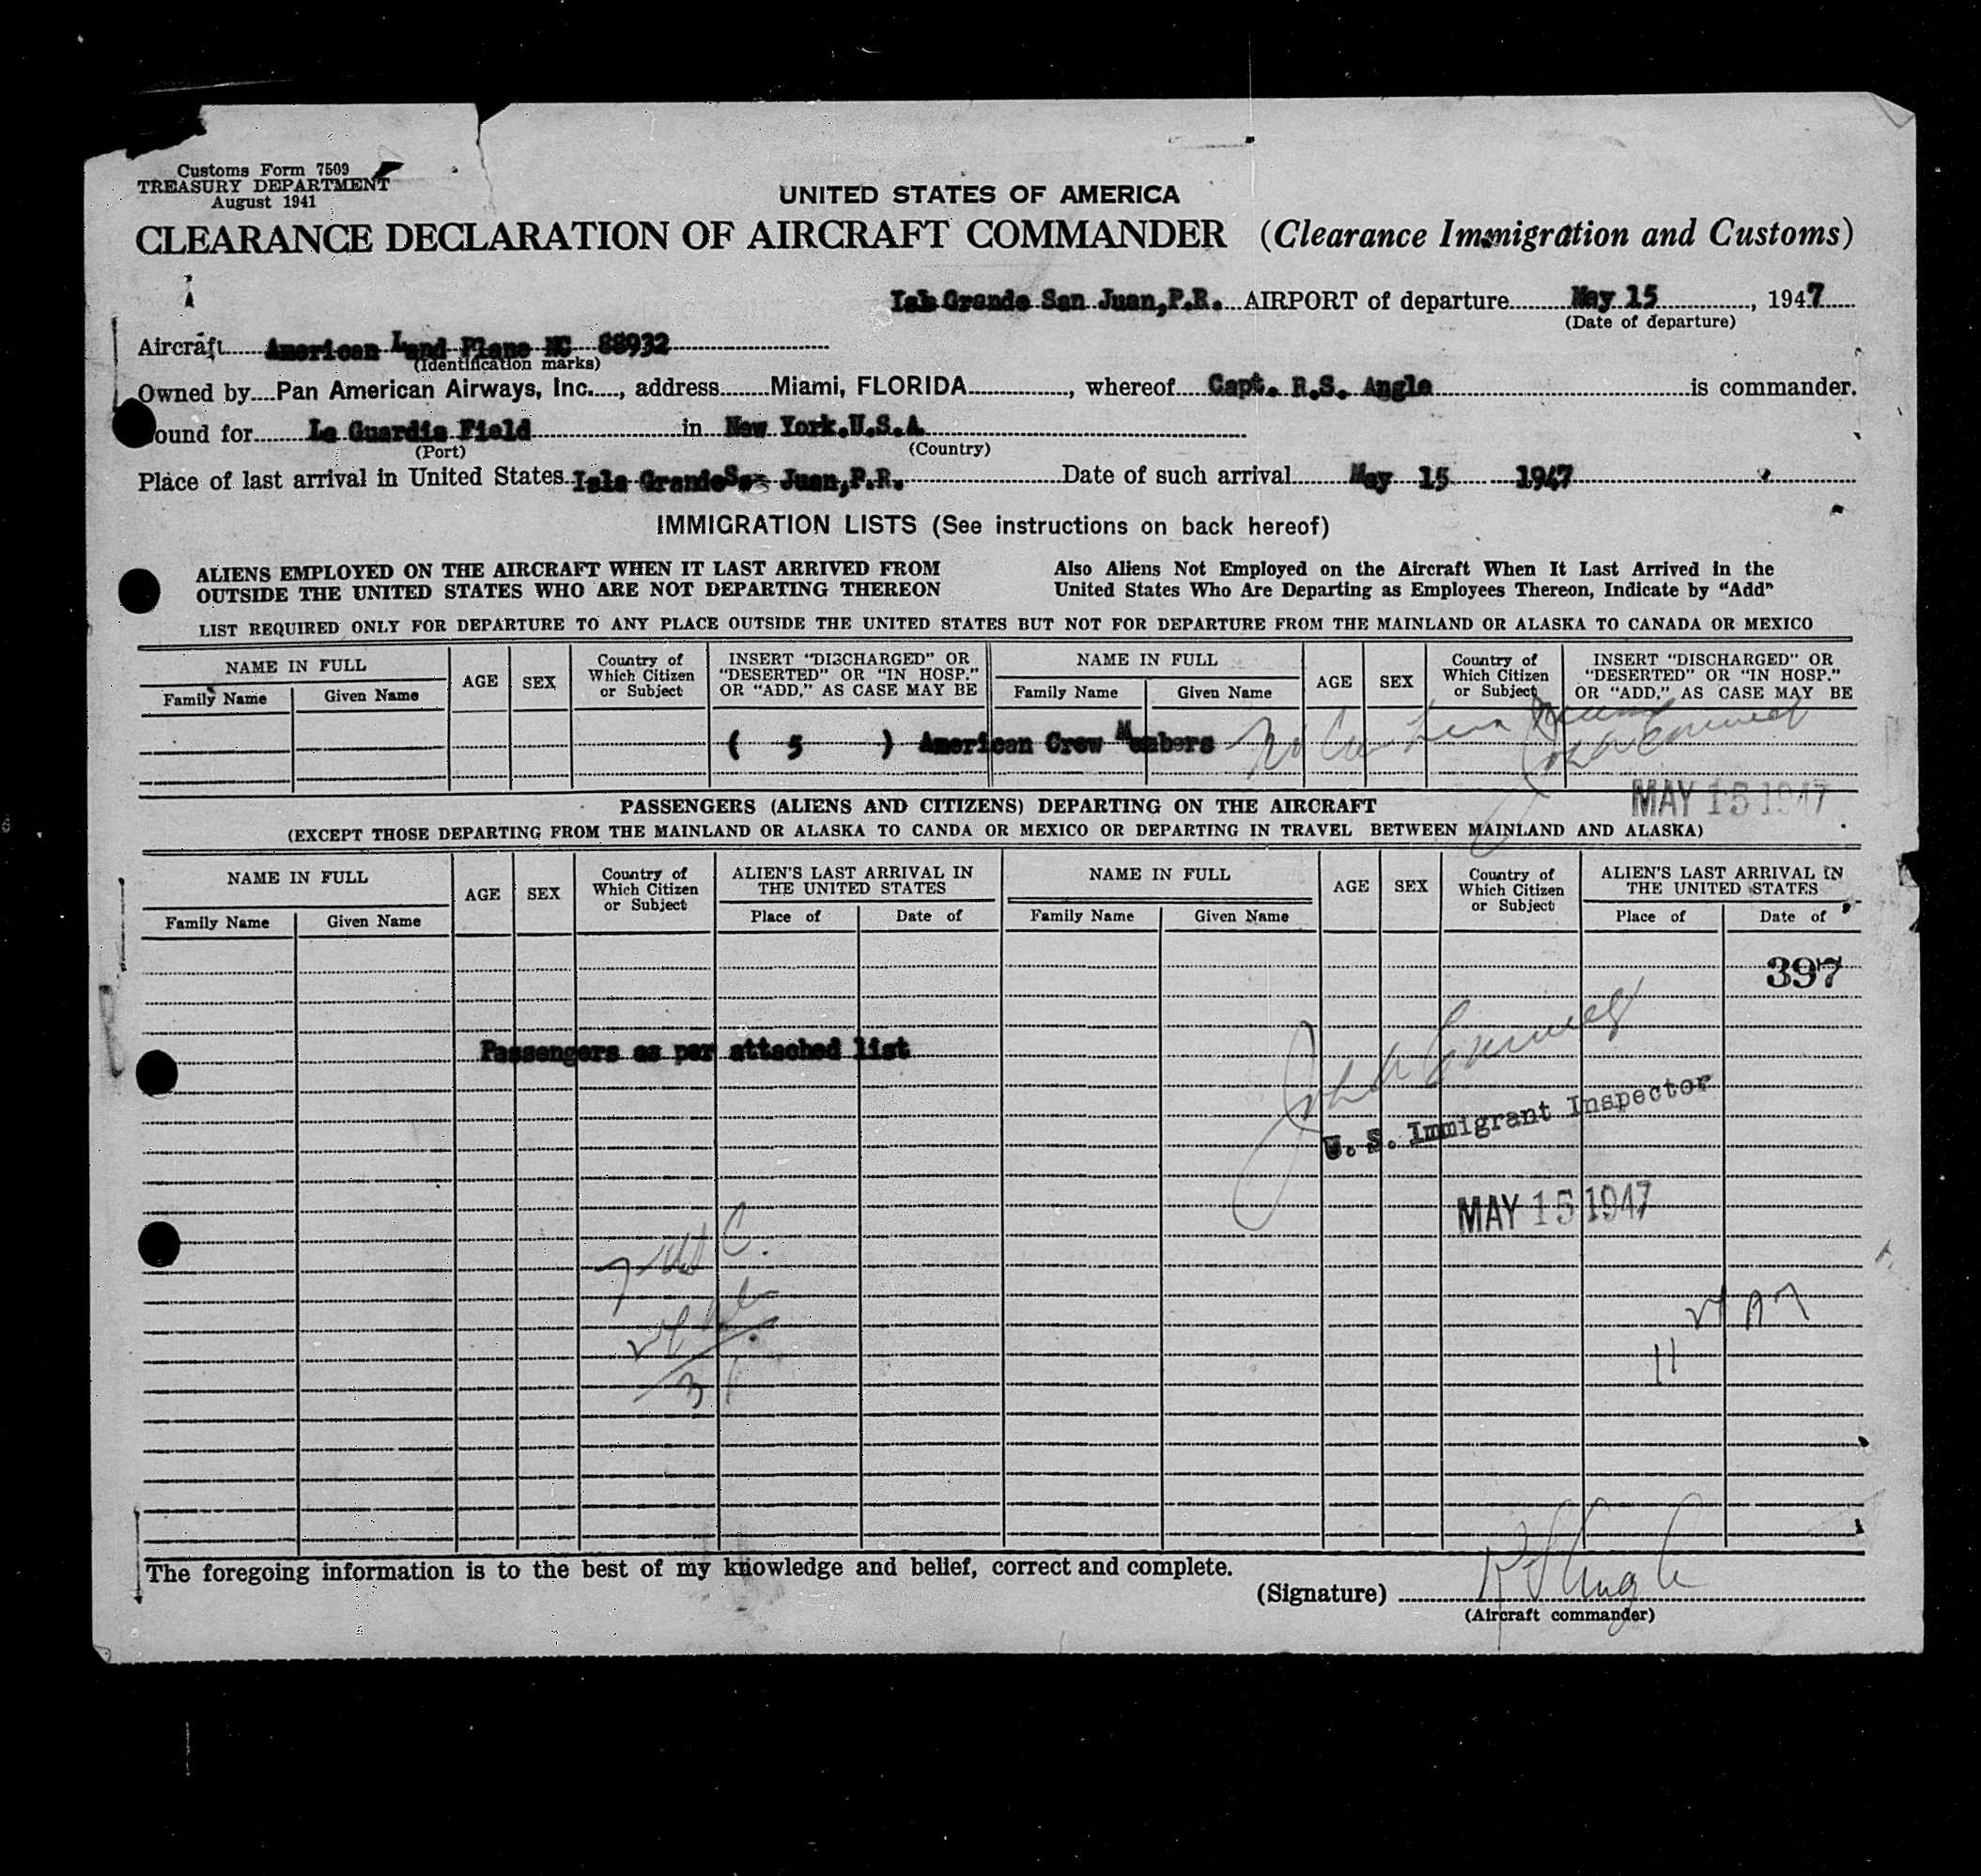 Customs Form 7509
TREASURY DEPARTMENT
August 1941
UNITED STATES OF AMERICA
CLEARANCE DECLARATION OF AIRCRAFT COMMANDER (Clearance Immigration and Customs)
Isla Grande San Juan,P.R. AIRPORT of departure May 15, 1947
(Date of departure)
Aircraft American Land Plane NC 88932
(Identification marks)
Owned by Pan American Airways, Inc., address Miami, FLORIDA, whereof Capt. R.S. Angle is commander.
ound for La Guardia Field in New York.U.S.A.
(Port) (Country)
Place of last arrival in United States Isla Grande San Juan,P.R. Date of such arrival May 15 1947
IMMIGRATION LISTS (See instructions on back hereof)
ALIENS EMPLOYED ON THE AIRCRAFT WHEN IT LAST ARRIVED FROM
OUTSIDE THE UNITED STATES WHO ARE NOT DEPARTING THEREON
Also Aliens Not Employed on the Aircraft When It Last Arrived in the
United States Who Are Departing as Employees Thereon, Indicate by "Add"
LIST REQUIRED ONLY FOR DEPARTURE TO ANY PLACE OUTSIDE THE UNITED STATES BUT NOT FOR DEPARTURE FROM THE MAINLAND OR ALASKA TO CANADA OR MEXICO
NAME IN FULL
Family Name Given Name
AGE
SEX
Country of
Which Citizen
or Subject
INSERT "DISCHARGED" OR
"DESERTED" OR "IN HOSP."
OR "ADD," AS CASE MAY BE
NAME IN FULL
Family Name Given Name
AGE
SEX
Country of
Which Citizen
or Subject
INSERT "DISCHARGED" OR
"DESERTED" OR "IN HOSP."
OR "ADD," AS CASE MAY BE
( 5 ) American Crew Members
MAY 15 1947
PASSENGERS (ALIENS AND CITIZENS) DEPARTING ON THE AIRCRAFT
(EXCEPT THOSE DEPARTING FROM THE MAINLAND OR ALASKA TO CANDA OR MEXICO OR DEPARTING IN TRAVEL BETWEEN MAINLAND AND ALASKA)
NAME IN FULL
Family Name Given Name
AGE
SEX
Country of
Which Citizen
or Subject
ALIEN'S LAST ARRIVAL IN
THE UNITED STATES
Place of Date of
NAME IN FULL
Family Name Given Name
AGE
SEX
Country of
Which Citizen
or Subject
ALIEN'S LAST ARRIVAL IN
THE UNITED STATES
Place of Date of
397
Passengers as per attached list
U. S. Immigrant Inspector
MAY 15 1947
The foregoing information is to the best of my knowledge and belief, correct and complete.
(Signature) R S Angle
(Aircraft commander)